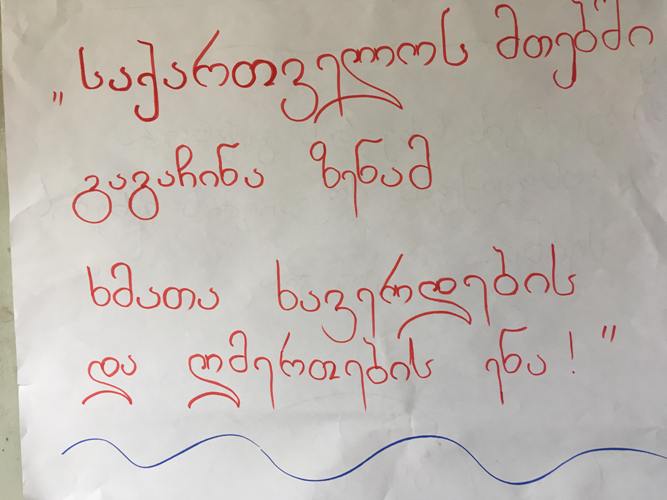 „საქართველოს მთებში
გაგაჩინა ზენამ
ხმათა ხავერდების
და ღმერთების ენა!"